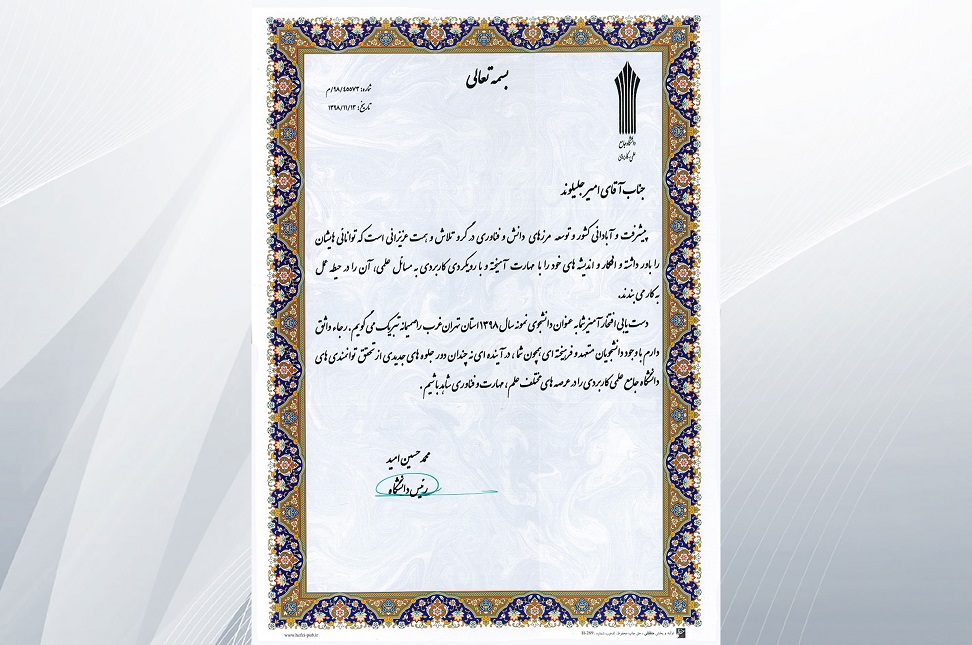 بسمه تعالی
شماره: ۹۸/۴۵۵۷۲/م
تاریخ: ۱۳۹۸/۱۱/۱۳
دانشگاه جامع
علمی کاربردی
جناب آقای امیر جلیلوند
پیشرفت و آبادانی کشور و توسعه مرزهای دانش و فناوری در گرو تلاش و همت عزیزانی است که توانائی هایشان
را باور داشته و افکار و اندیشه های خود را با مهارت آمیخته و با رویکردی کاربردی به مسائل علمی، آن را در حیطه عمل
به کار می بندند.
دست یابی افتخار آمیز شما به عنوان دانشجوی نمونه سال ۱۳۹۸ استان تهران غرب را صمیمانه تبریک می گویم. رجاء واثق
دارم با وجود دانشجویان متعهد و فرهیخته ای همچون شما، در آینده ای نه چندان دور جلوه های جدیدی از تحقق توانمندی های
دانشگاه جامع علمی کاربردی را در عرصه های مختلف علم، مهارت و فناوری شاهد باشیم.
محمد حسین امید
رئیس دانشگاه
www.hefzi-pub.ir